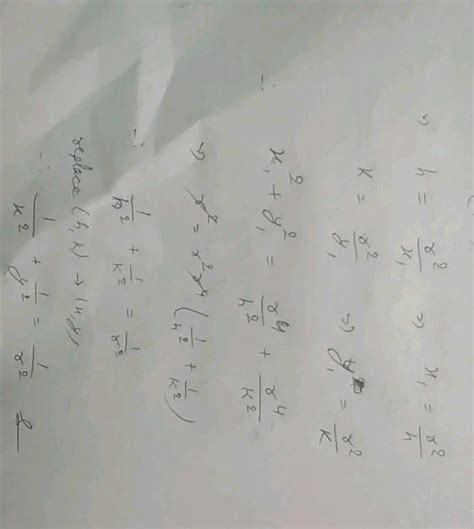 ⇒ h = r²/x₁ ⇒ x₁ = r²/h
k = r²/y₁ ⇒ y₁ = r²/k
∴ x₁² + y₁² = r⁴/h² + r⁴/k²
⇒ r² = r⁴ (1/h² + 1/k²)
⇒ 1/h² + 1/k² = 1/r²
replace (h, k) → (x, y)
∴ 1/x² + 1/y² = 1/r²